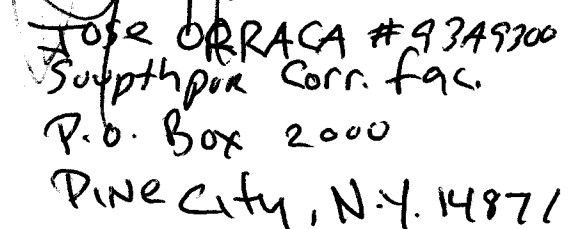 Jose ORRACA #93A9300
Soupthport Corr. fac.
P.O. Box 2000
Pine City, N.Y. 14871